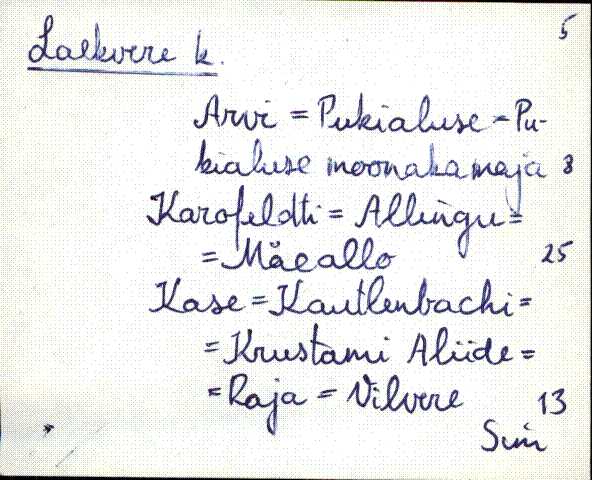 5
Laekvere k.
Arvi = Pukialuse - Pu-
kialuse moonakamaja 8
Karofeldti = Allingu =
= Mäeallo 25
Kase = Kautlenbachi =
= Krustami Aliide =
= Raja = Vilvere 13
Sim